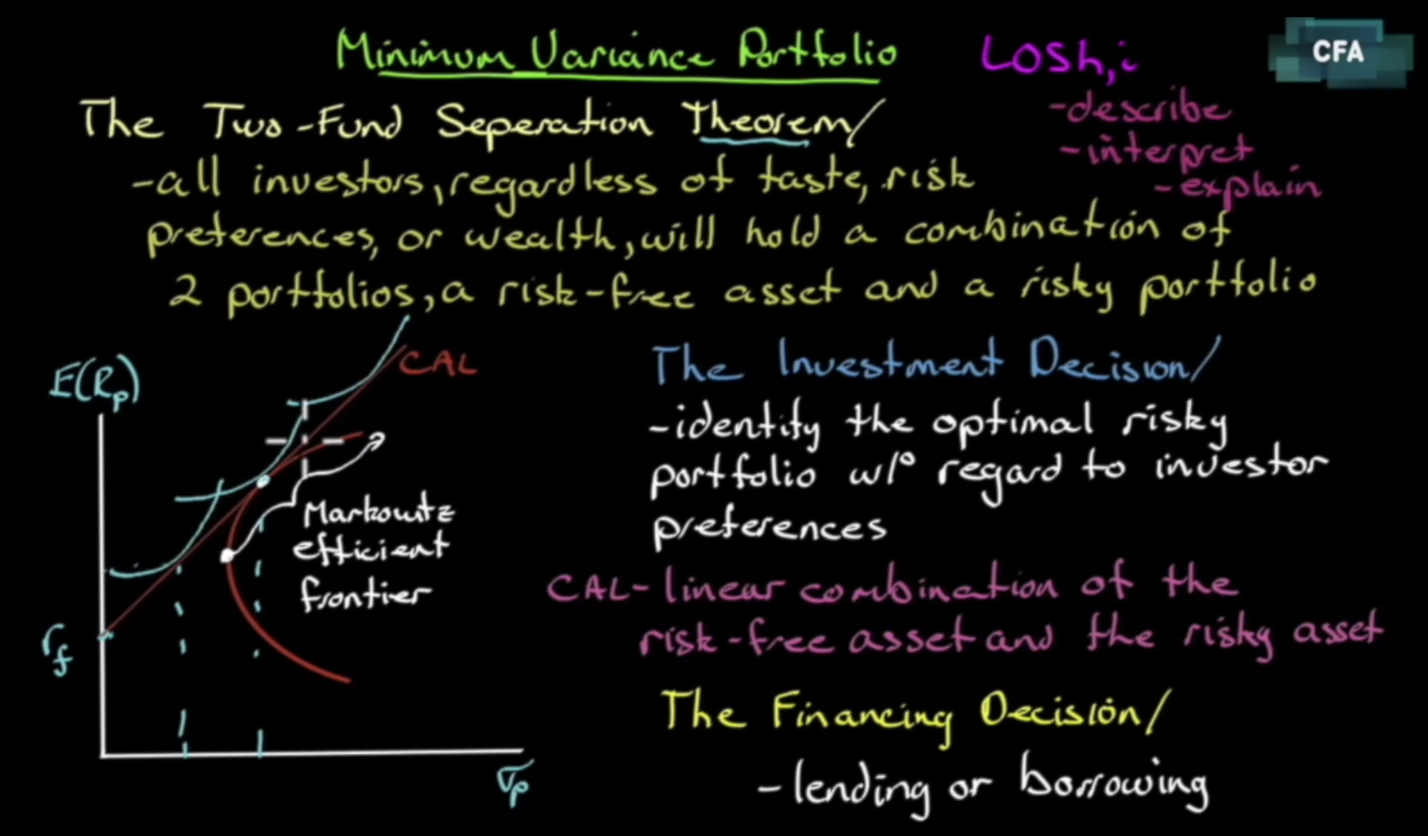 Minimum Variance Portfolio
LOS h, i
CFA
- describe
- interpret
- explain
The Two-Fund Seperation Theorem/
- all investors, regardless of taste, risk
preferences, or wealth, will hold a combination of
2 portfolios, a risk-free asset and a risky portfolio
E(Rp)
CAL
Markowitz
efficient
frontier
rf
σp
The Investment Decision/
- identify the optimal risky
portfolio w/o regard to investor
preferences
CAL - linear combination of the
risk-free asset and the risky asset
The Financing Decision/
- lending or borrowing